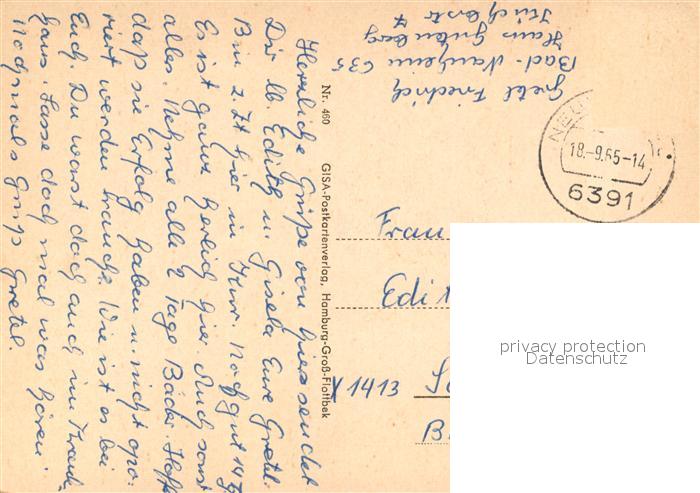 Herzliche Grüße von hier sendet
Dir lb. Edith u. Gisela Eure Gretel.
Bin z. Zt hier in Kur. Noch gut 14 T.
Es ist ganz herlich hier. Auch sonst
alles. Nehme alle 2 Tage Bäder. Hoffe
daß sie Erfolg haben u. nicht ope-
riert werden brauche. Wie ist es bei
Euch. Du warst doch auch im Krank-
haus. Lasse doch mal was hören.
Nochmals Gruß Gretel.
Nr. 460 GISA-Postkartenverlag, Hamburg-Groß-Flottbek
Gretel Friedrich
Bad-Nauheim 635
Haus Gutenberg
18.-9.65-14
6391
Frau
Edit
1413
privacy protection
Datenschutz